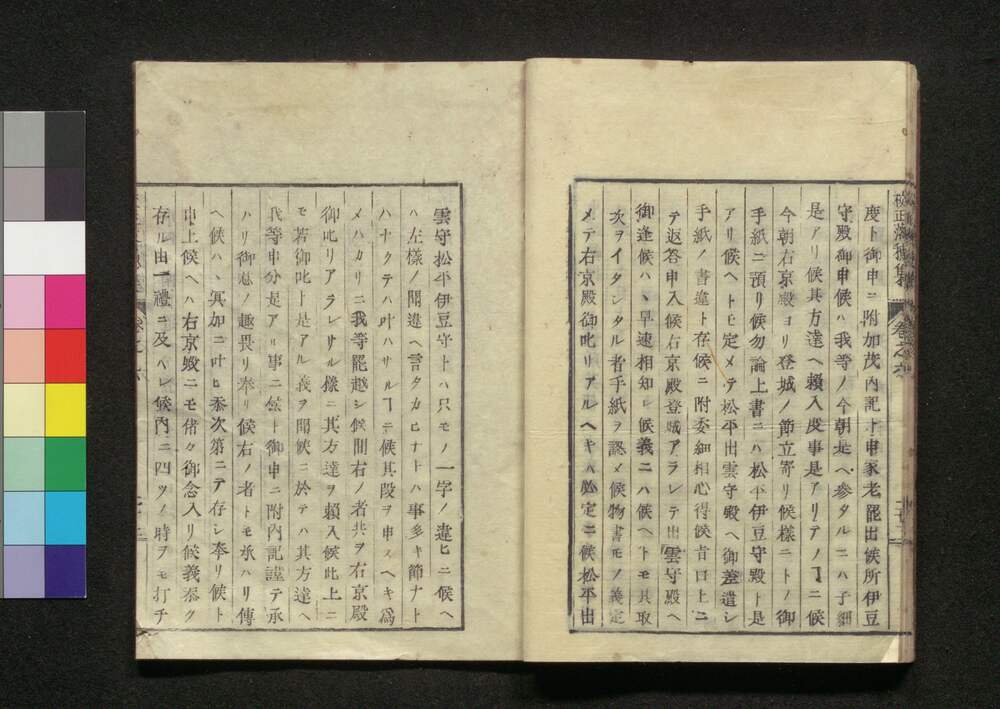 度ト御申ニ附加茂内記ト申家老罷出候所伊豆
守殿御申候ハ我等ノ今朝是ヘ参タルニハ子細
是アリ候其方達ヘ頼入度事是アリテノヿニ候
今朝右京殿ヨリ登城ノ節立寄リ候様ニトノ御
手紙ニ預リ候勿論上書ニハ松平伊豆守殿ト是
アリ候ヘトモ定メテ松平出雲守殿ヘ御差遣シ
手紙ノ書違ト存候ニ附委細相心得候旨口上ニ
テ返答申入候右京殿登城アラレテ出雲守殿ヘ
御逢候ハヽ早速相知レ候義ニハ候ヘトモ其取
次ヲイタシタル者手紙ヲ認メ候物書モノ義定
メテ右京殿御叱リアルヘキハ必定ニ候松平出
雲守松平伊豆守トハ只モノ一字ノ違ヒニ候ヘ
ハ左様ノ間違ヘ言タカヒナトハ事多キ節ナト
ハナクテハ叶ハサルヿニテ候其段ヲ申スヘキ為
メハカリニ我等罷越シ候間右ノ者共ヲ右京殿
御叱リアラレサル様ニ其方達ヲ頼入候此上ニ
モ若御叱ト是アル義ヲ聞候ニ於テハ其方達ヘ
我等申分是アル事ニ候ト御申ニ附内記謹テ承
ハリ御懇ノ趣畏リ奉リ候右ノ者トモ承ハリ傳
ヘ候ハヽ冥加ニ叶ヒ忝次第ニテ存シ奉リ候ト
申上候ヘハ右京殿ニモ偖々御念入リ候義忝ク
存ル由一禮ニ及ハレ候内ニ四ツノ時ヲモ打チ